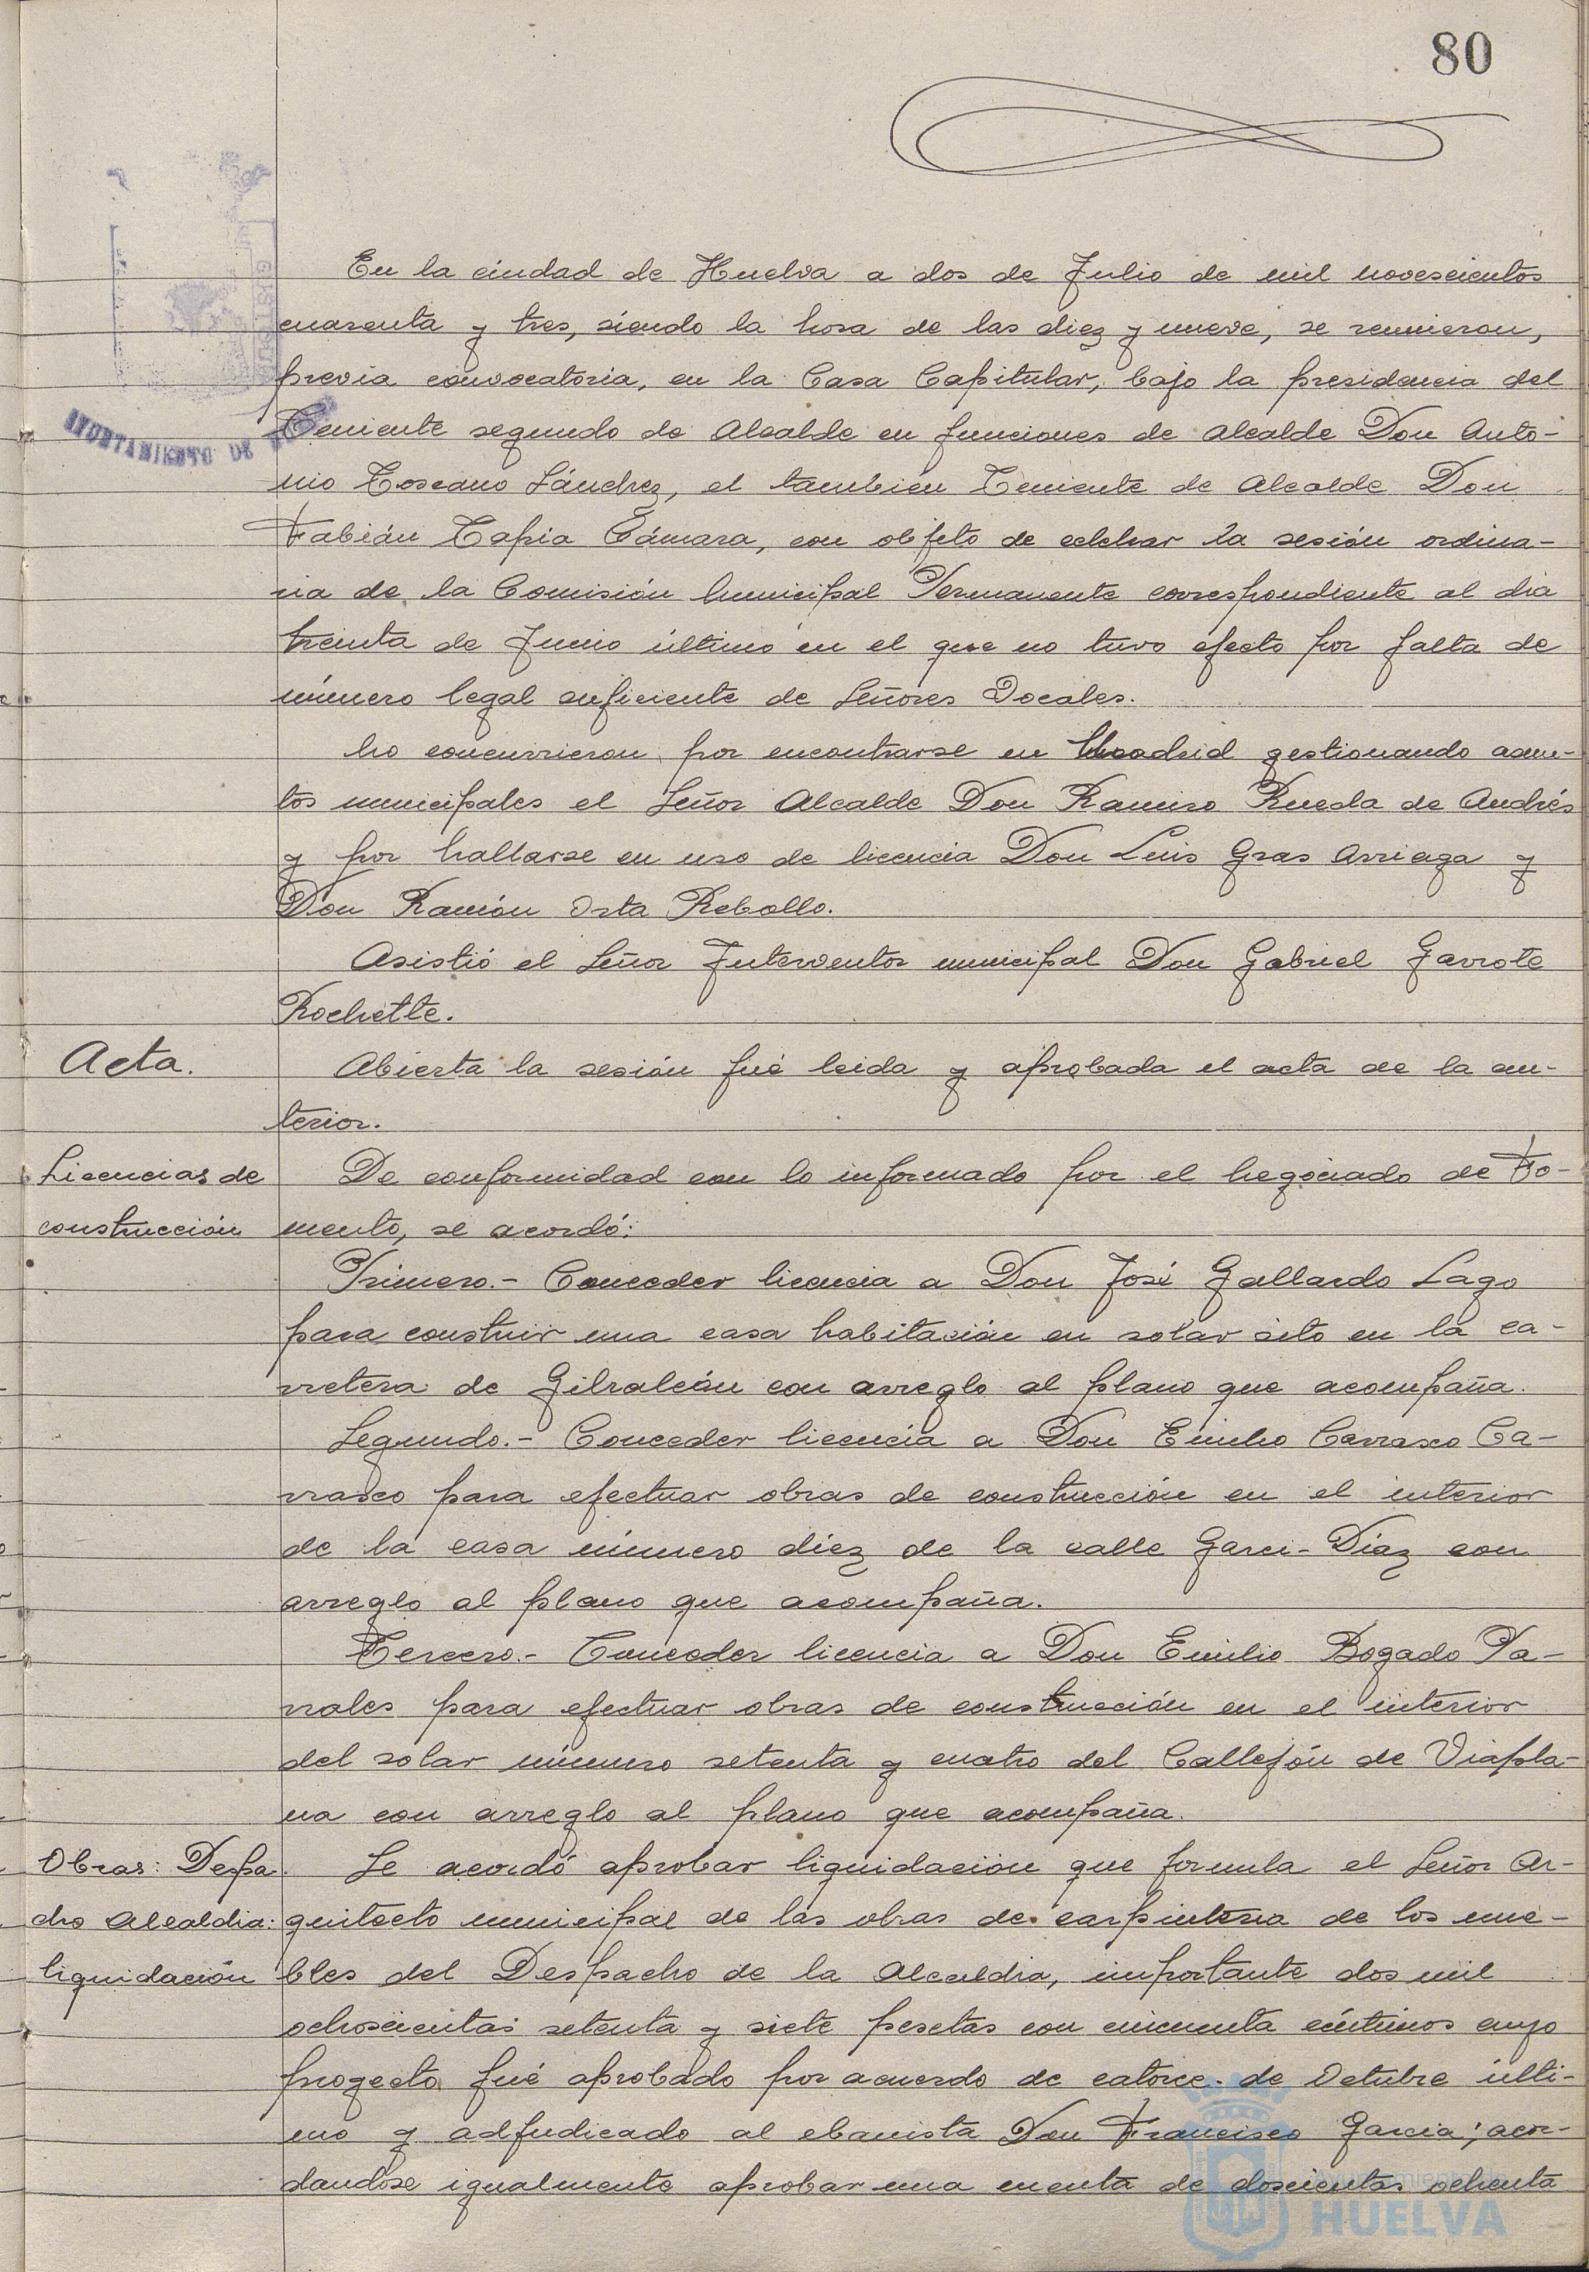 80
En la ciudad de Huelva a dos de Julio de mil novescientos
cuarenta y tres, siendo la hora de las diez y nueve, se reunieron,
previa convocatoria, en la Casa Capitular, bajo la presidencia del
AYUNTAMIENTO DE
Teniente segundo de Alcalde en funciones de Alcalde Don Anto-
nio Toscano Sánchez, el también Teniente de Alcalde Don
Fabián Tapia Cámara, con objeto de celebrar la sesión ordina-
ria de la Comisión Municipal Permanente correspondiente al dia
treinta de Junio último en el que no tuvo efecto por falta de
número legal suficiente de Señores Vocales.
No concurrieron por encontrarse en Madrid gestionando asun-
tos municipales el Señor Alcalde Don Ramiro Rueda de Andrés
y por hallarse en uso de licencia Don Luis Gras Arriaga y
Don Ramón Orta Rebollo.
Asistió el Señor Interventor municipal Don Gabriel Garrote
Rochette.
Acta.
Abierta la sesión fué leida y aprobada el acta de la an-
terior.
Licencias de
construcción
De conformidad con lo informado por el Negociado de Fo-
mento, se acordó:
Primero.- Conceder licencia a Don José Gallardo Lago
para construir una casa habitación en solar sito en la ca-
rretera de Gibraleón con arreglo al plano que acompaña.
Segundo.- Conceder licencia a Don Emilio Carrasco Ca-
rrasco para efectuar obras de construcción en el interior
de la casa número diez de la calle Garci-Díaz con
arreglo al plano que acompaña.
Tercero.- Conceder licencia a Don Emilio Bogado Pa-
rrales para efectuar obras de construcción en el interior
del solar número setenta y cuatro del Callejón de Viapla-
na con arreglo al plano que acompaña.
Obras: Despa
cho Alcaldia:
liquidación
Se acordó aprobar liquidación que formula el Señor Ar-
quitecto municipal de las obras de carpinteria de los mue-
bles del Despacho de la Alcaldia, importante dos mil
ochoscientas setenta y siete pesetas con cincuenta céntimos cuyo
proyecto fué aprobado por acuerdo de catorce de Octubre últi-
mo y adjudicado al ebanista Don Francisco Garcia; acor-
dandose igualmente aprobar una cuenta de doscientas ochenta
Ayuntamiento de
HUELVA